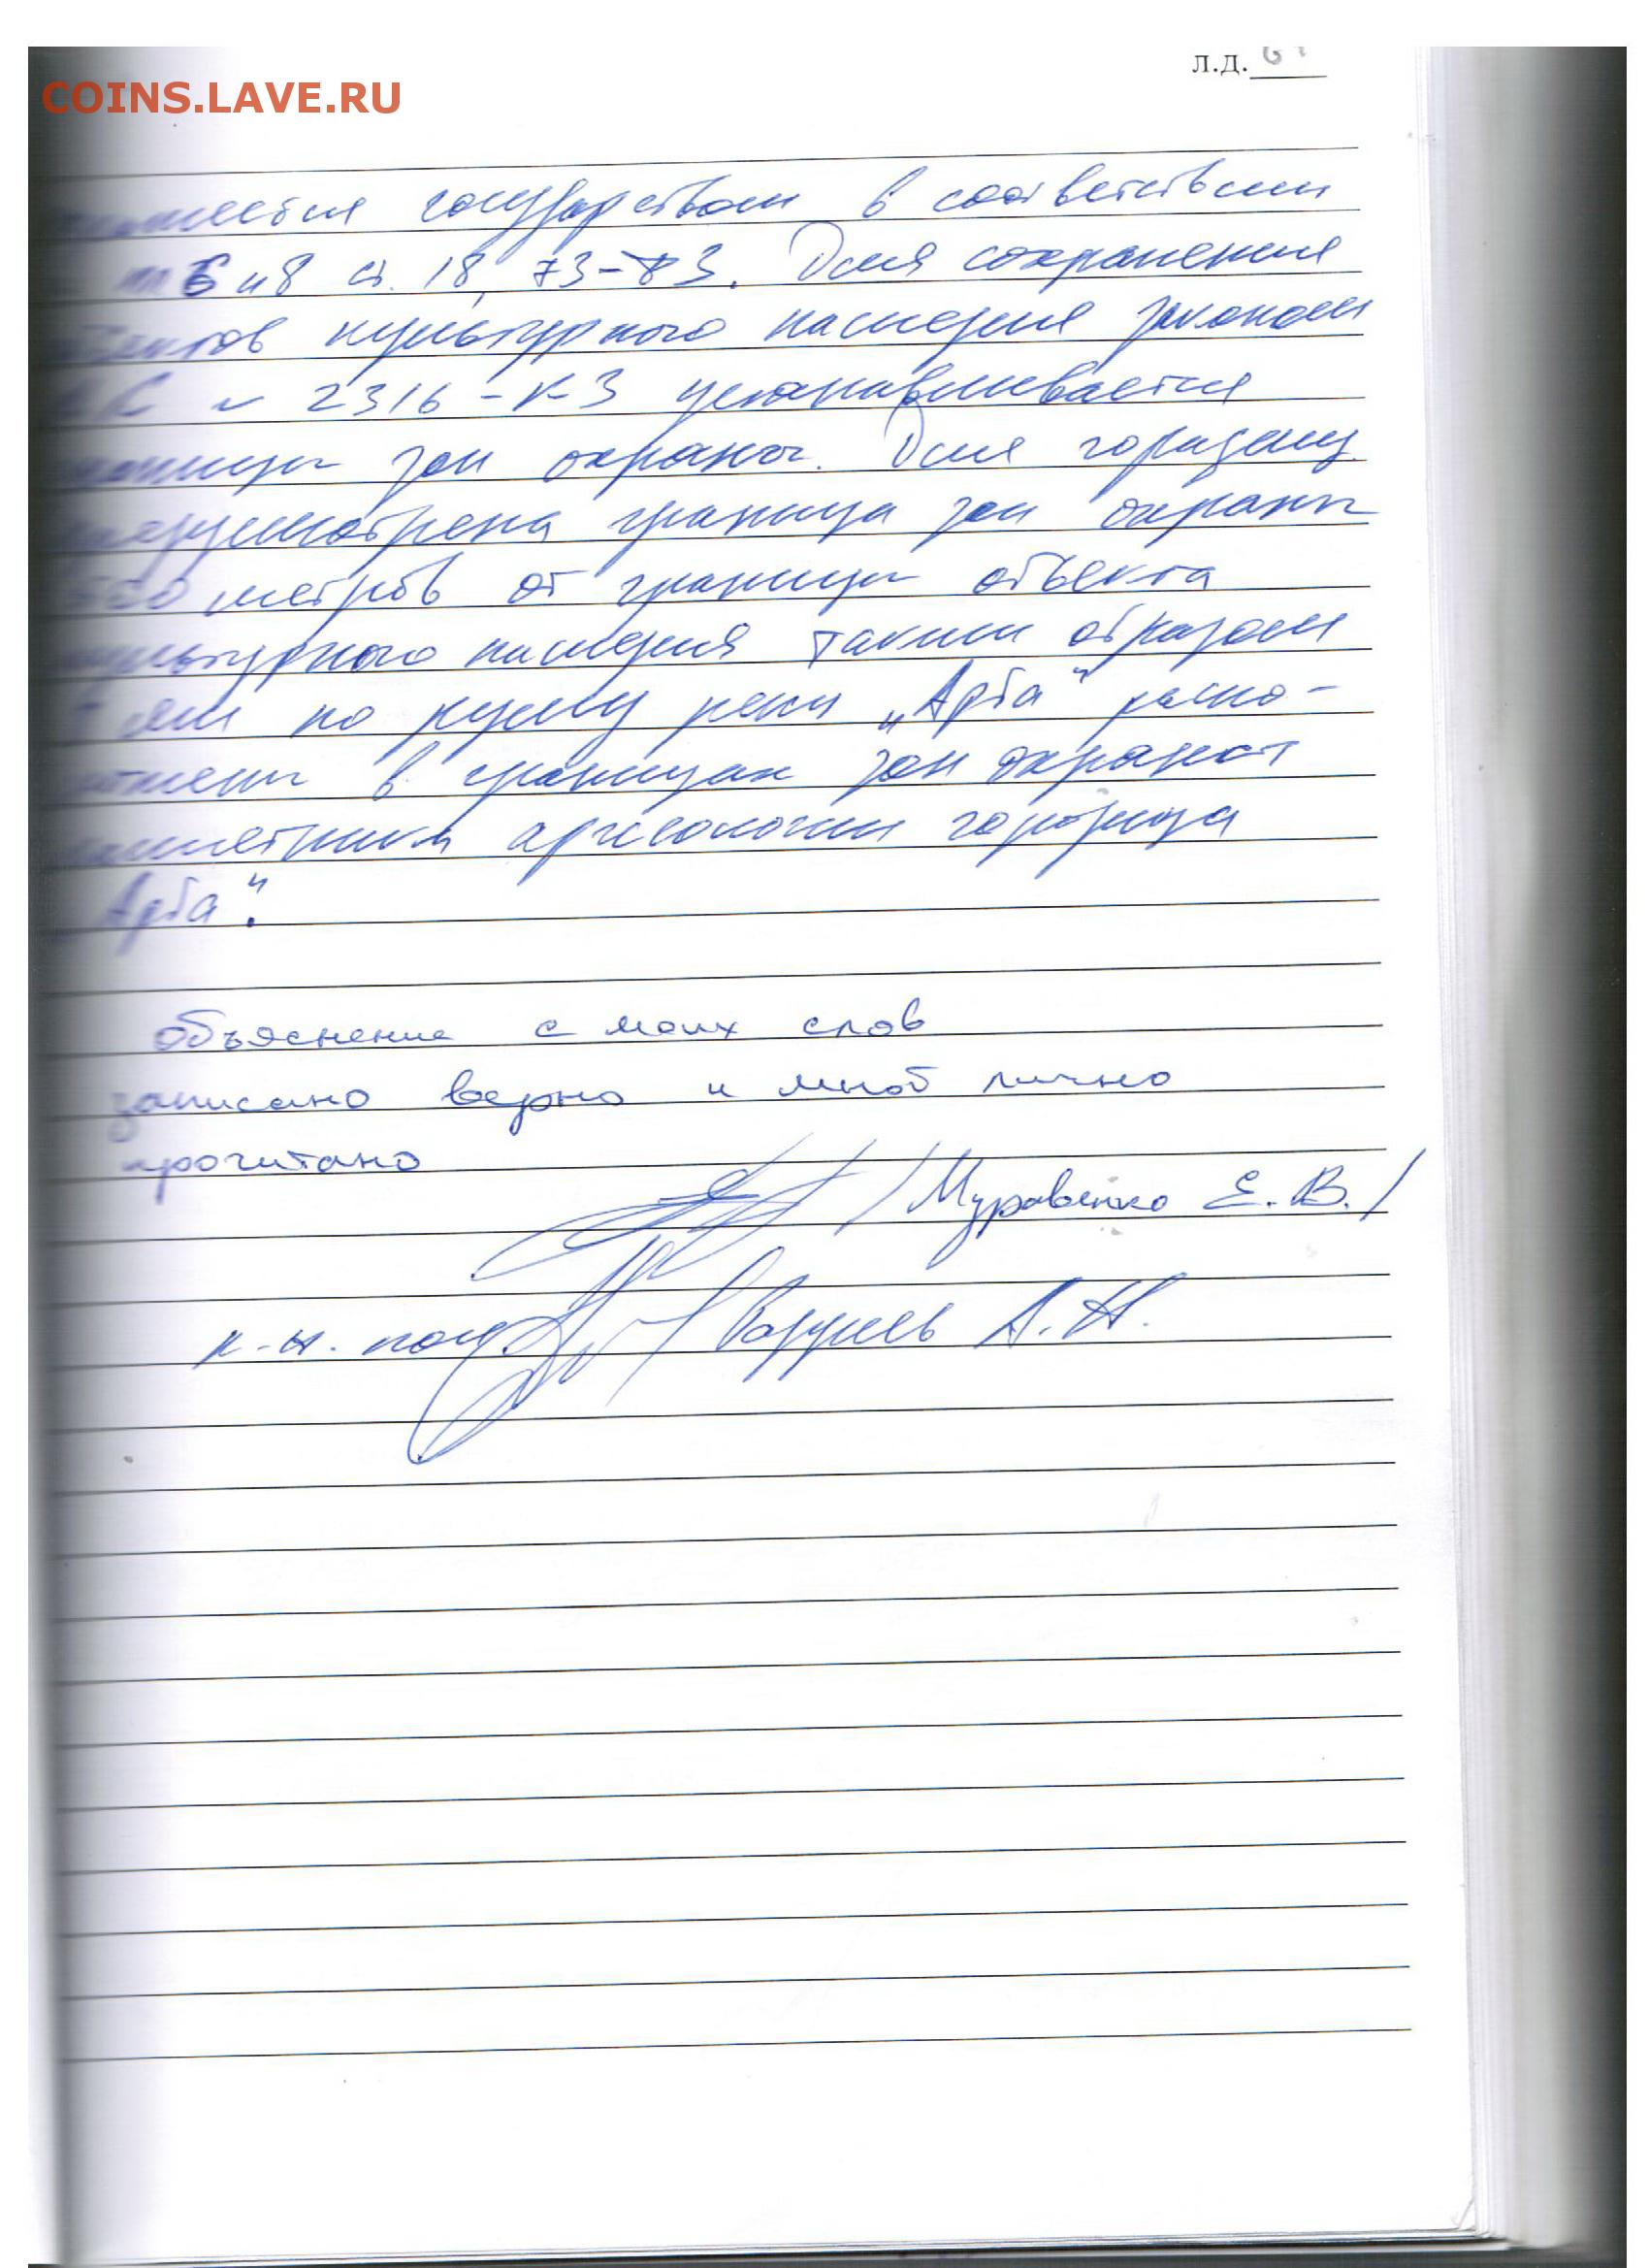 л.д.
COINS.LAVE.RU
государством в соответствии
6 и 8 ст. 18, 73-ФЗ. Для сохранения
культурного наследия законом
№ 2316-КЗ устанавливается
зон охраны. Для городищ
граница зон охраны
метров от границы объекта
культурного наследия таким образом
по руслу реки „Арба" распо-
в границах зон охраны
памятника археологии городища
Арба".
объяснение с моих слов
записано верно и мной лично
прочитано
/Муравенко Е. В./
А. Н.